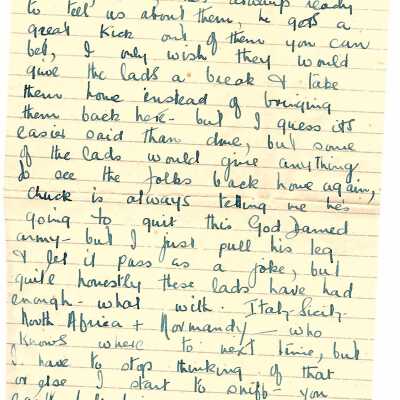 always ready
to tell us about them, he gets a
great kick out of them you can
bet, I only wish they would
give the lads a break & take
them home instead of bringing
them back here - but I guess its
easier said than done, but some
of the lads would give anything
to see the folks back home again,
Chuck is always telling me he's
going to quit this God Damed
army - but I just pull his leg
& let it pass as a joke, but
quite honestly these lads have had
enough - what with Italy Sicily.
North Africa + Normandy - who
knows where to next time, but
I have to stop thinking of that
or else I start to sniff - you